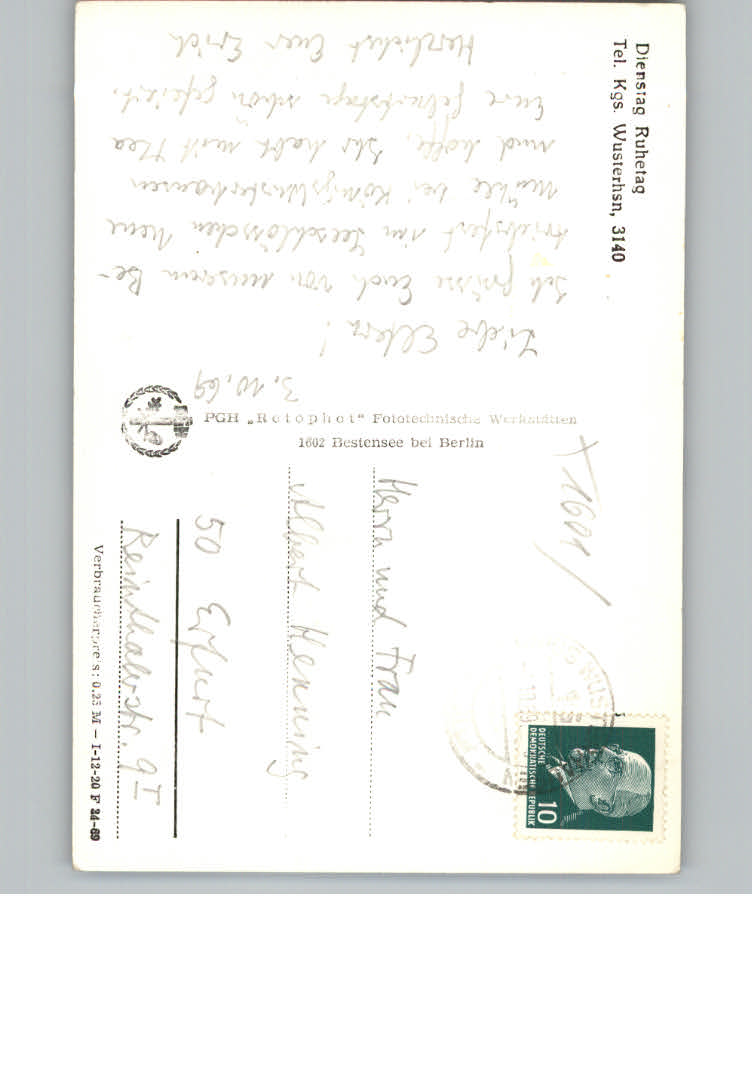 Dienstag Ruhetag
Tel. Kgs. Wusterhsn, 3140
3.10.69
Liebe Eltern!
Ich grüsse Euch von unserem Be-
triebsfest im Seeschlösschen Neue
Mühle bei Königswusterhausen
und hoffe, Ihr habt mit Thea
Eure Geburtstage schön gefeiert.
Herzlichst Euer Erich
PGH „Rotophot“ Fototechnische Werkstätten
1602 Bestensee bei Berlin
1601
Herrn und Frau
Albert Henning
50 Erfurt
Reinthalerstr. 9 I
Verbraucherpreis: 0.25 M — I-13-20 F 24-69
DEUTSCHE
DEMOKRATISCHE REPUBLIK
10